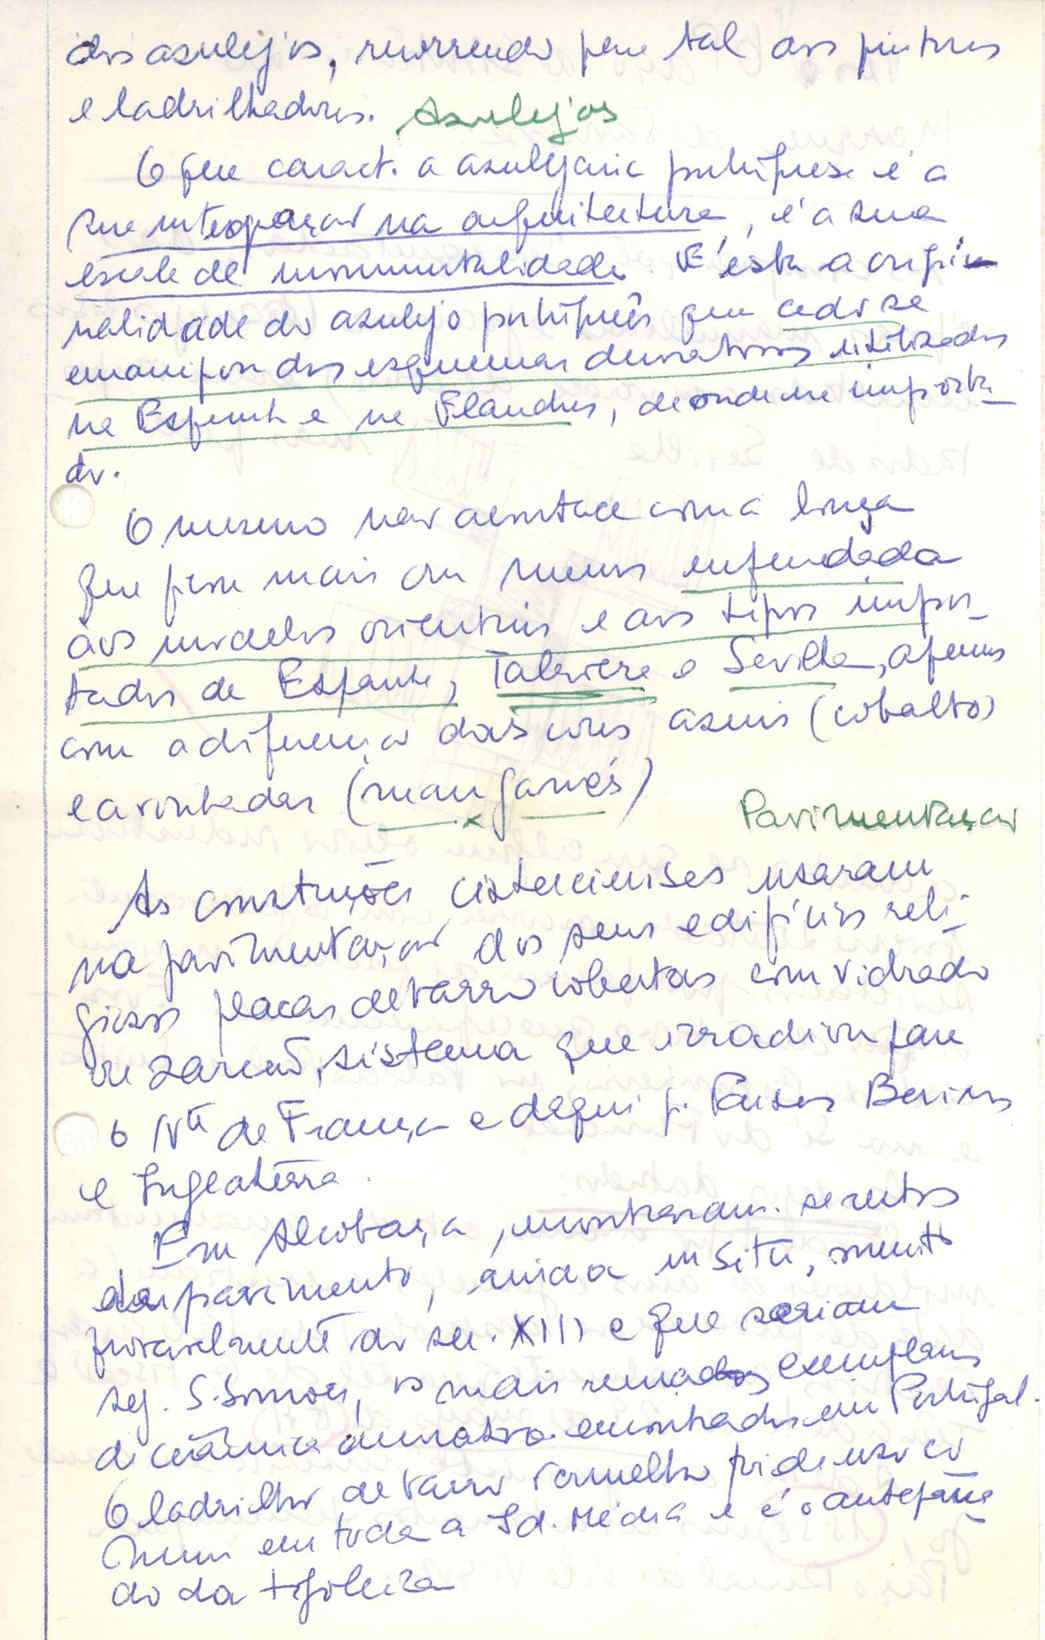 dos azulejos, recorrendo para tal aos pintores
e ladrilhadores. Azulejos
O que caract. a azulejaria portuguesa é a
sua integração na arquitectura, é a sua
escala de monumentalidade. É esta a origi-
nalidade do azulejo português que cedo se
emancipou dos esquemas decorativos utilizados
na Espanha e na Flandres, de onde era importa-
do.
O mesmo não acontece com a louça
que ficou mais ou menos enfeudada
aos modelos orientais e aos tipos impor-
tados de Espanha, Talavera e Sevilha, apenas
com a diferença das cores azuis (cobalto)
e arroxeadas (manganés)
Pavimentação
As construções cistercienses usaram
na pavimentação dos seus edifícios reli-
giosos placas de barro cobertas com vidrado
ou zarcão, sistema que irradiou para
o Nte de França e daqui p. Países Baixos
e Inglaterra.
Em Alcobaça, encontraram-se restos
do pavimento, ainda in situ,
provavelmente do séc. XIII e que seriam
seg. S. Simões, os mais recuados exemplares
de cerâmica decorativa encontrados em Portugal.
O ladrilho de barro vermelho foi de uso co
mum em toda a Id. Média e é o antepassa
do da tijoleira